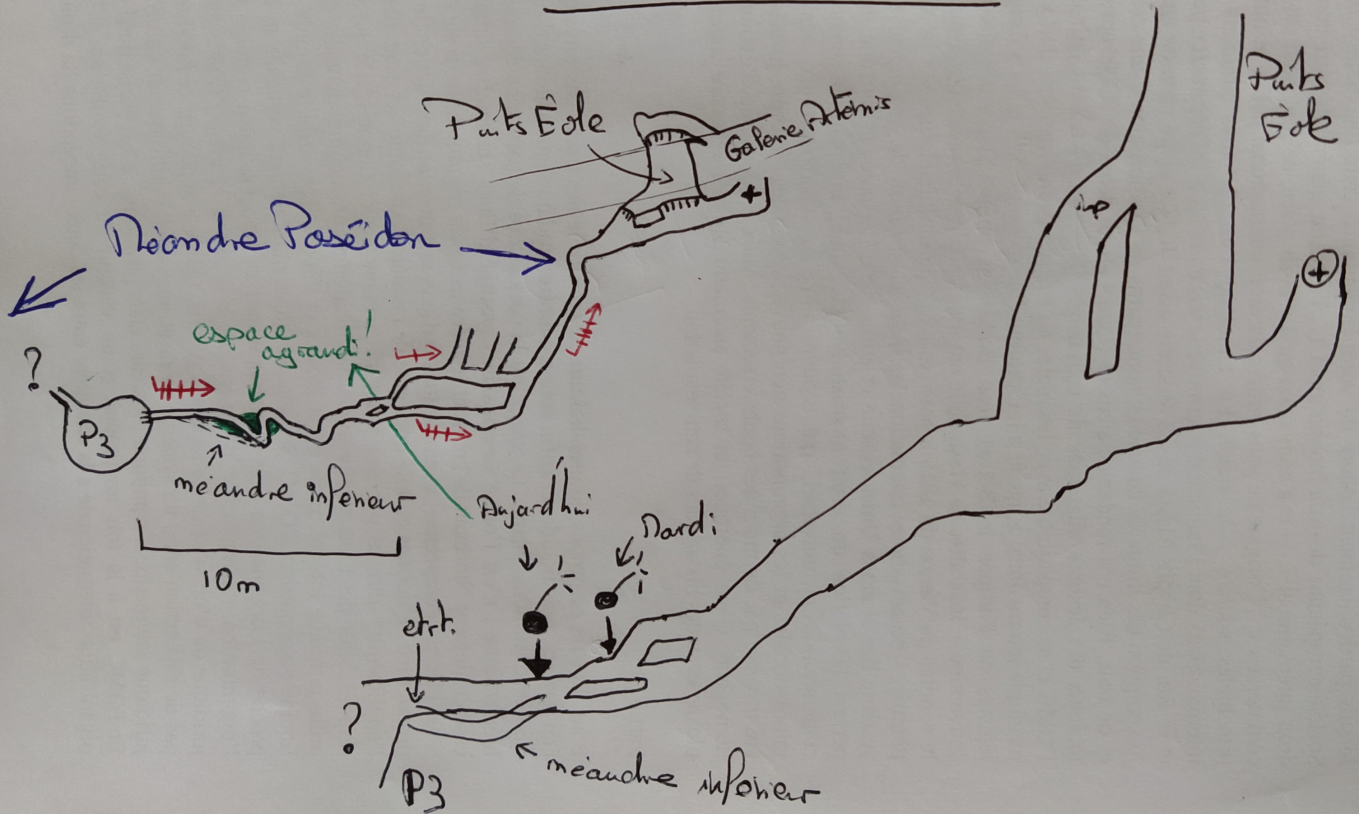 Puits Éole
Galerie Artémis
Puits
Éole
+
imp
+
Méandre Poséidon
espace
agrandi!
?
P3
méandre inférieur
Aujord'hui
Mardi
10m
etrt.
?
P3
méandre inférieur